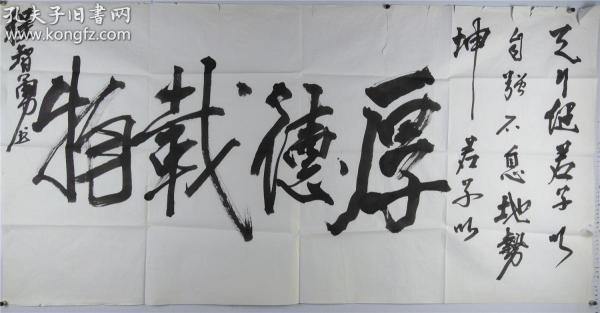 孔夫子旧书网
www.kongfz.com
天行健君子以
自強不息地勢
坤 君子以
厚德載物
智勇书